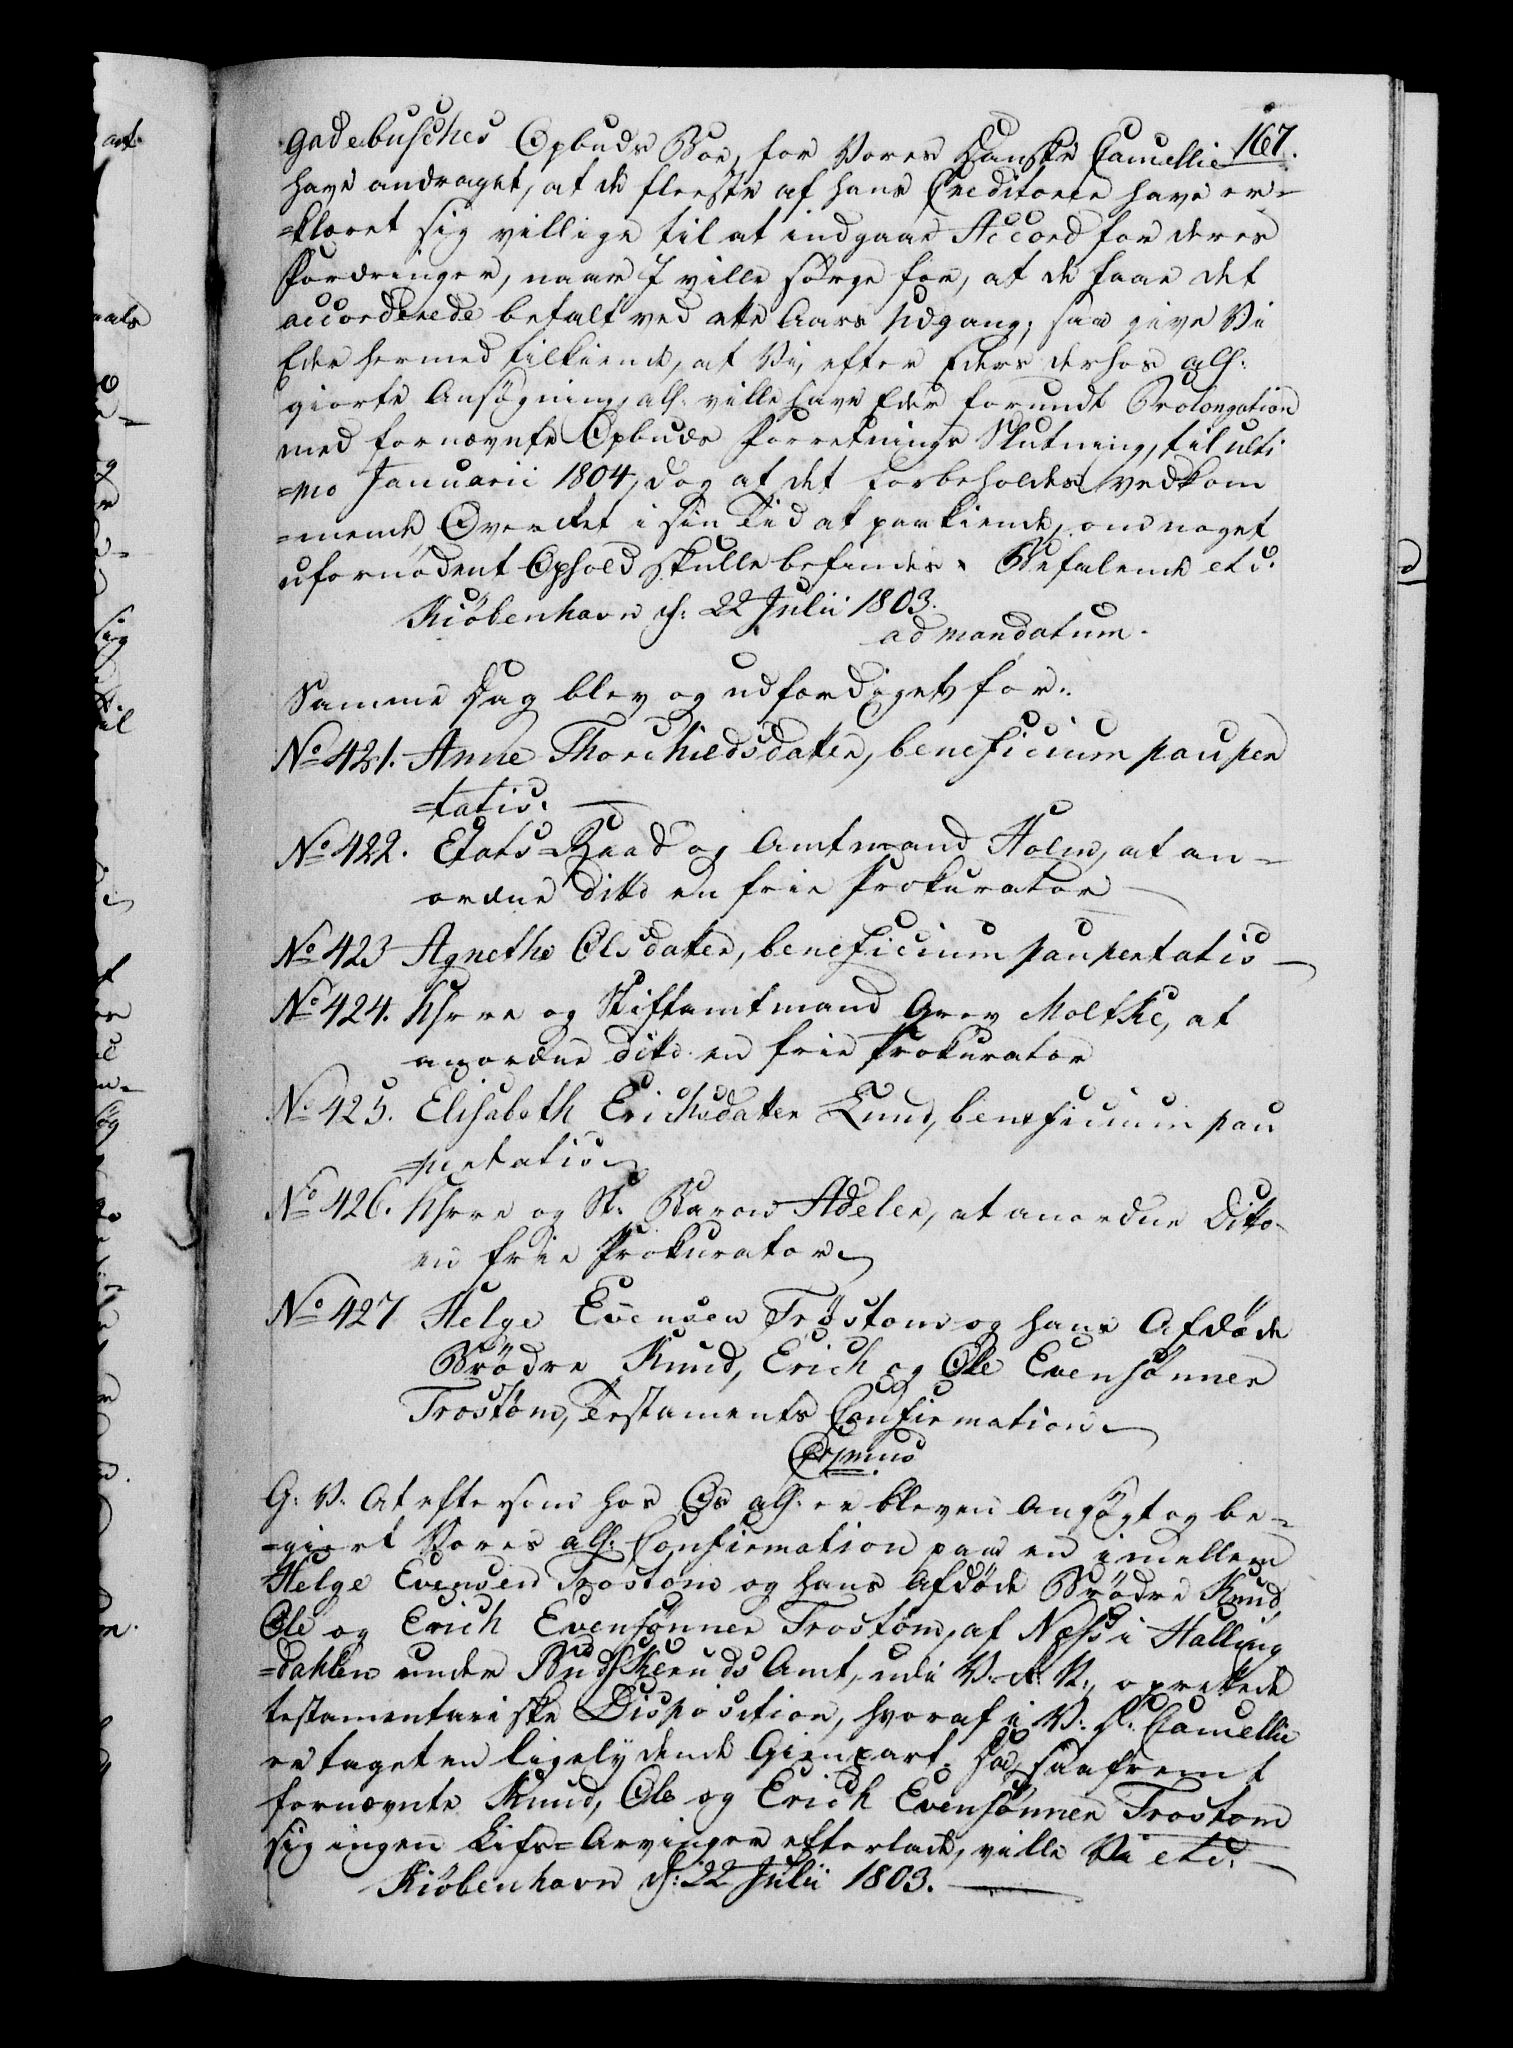 167.
Gadebusches Opbuds Boe, for Vores Danske Cancellie
have andraget, at de fleeste af hans Creditorer have er-
=klæret sig villige til at indgaae Accord for deres
Fordringer, naar I ville sørge for, at de faae det
accorderede betalt ved ette Aars Udgang; saa give Vi
Eder hermed tilkiende, at Vi, efter Eders derhos all:
giorte Ansøgning, all: ville have Eder forundt Prolongation
med fornævnte Opbuds Forretnings Slutning, til ulti
=mo Januarii 1804, dog at det forbeholdes vedkom
=mende Overret i sin Tid at paakiende, om noget
ufornødent Ophold skulle befindes. Befalende etc.
Kiöbenhavn d: 22 Julii 1803.
ad mandatum.
Samme Dag blev og udfærdiget for:
No 421. Anne Thorchildsdatter, beneficium pauper
=tatis.
No 422. Etats=Raad og Amtmand Holm, at an-
ordne ditto en frie Prokurator
No 423 Agnethe Olsdatter, beneficium paupertatis
No 424. Khrre og Stiftamtmand Grev Moltke, at
anordne ditto en frie Prokurator
No 425. Elisabeth Erichsdatter Lund, beneficium pau
=pertatis
No 426. Khrre og St. Baron Adeler, at anordne Ditto
en frie Prokurator
No 427 Helge Evensen Trostom og hans Afdøde
Brødre Knud, Erich og Ole Evensønner
Trostøm, Testaments Confirmation
G: V: At eftersom hos Os all: er bleven Ansøgt og be-
=giert Vores all: Confirmation paa en imellem
Helge Evensen Trostom og hans Afdøde Brødre Knud
Ole og Erich Evensønner Trostom, af Næss i Halling
=dahlen under Budskeruds Amt, udi V. R: N:, oprettede
testamentariske Disposition, hvoraf i V: D: Cancellie
er taget en ligelydende Gienpart. Da, saafremt
fornævnte Knud, Ole og Erich Evensønner Trostom
sig ingen Lifs=Arvinger efterlade, ville Vi etc.
Kiöbenhavn d: 22 Julii 1803.